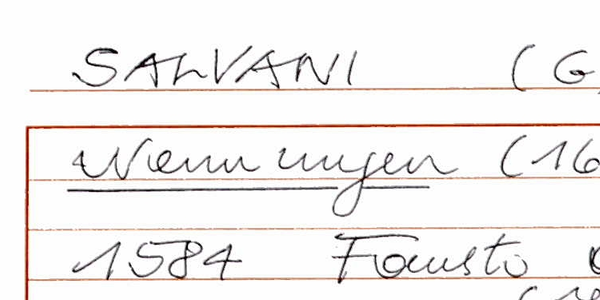 SALVANI (G
Nennungen (16
1584 Fausto